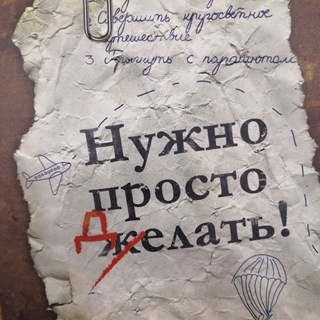 Совершить кругосветное
путешествие
3 Прыгнуть с парашютом
Нужно
просто
Джелать!